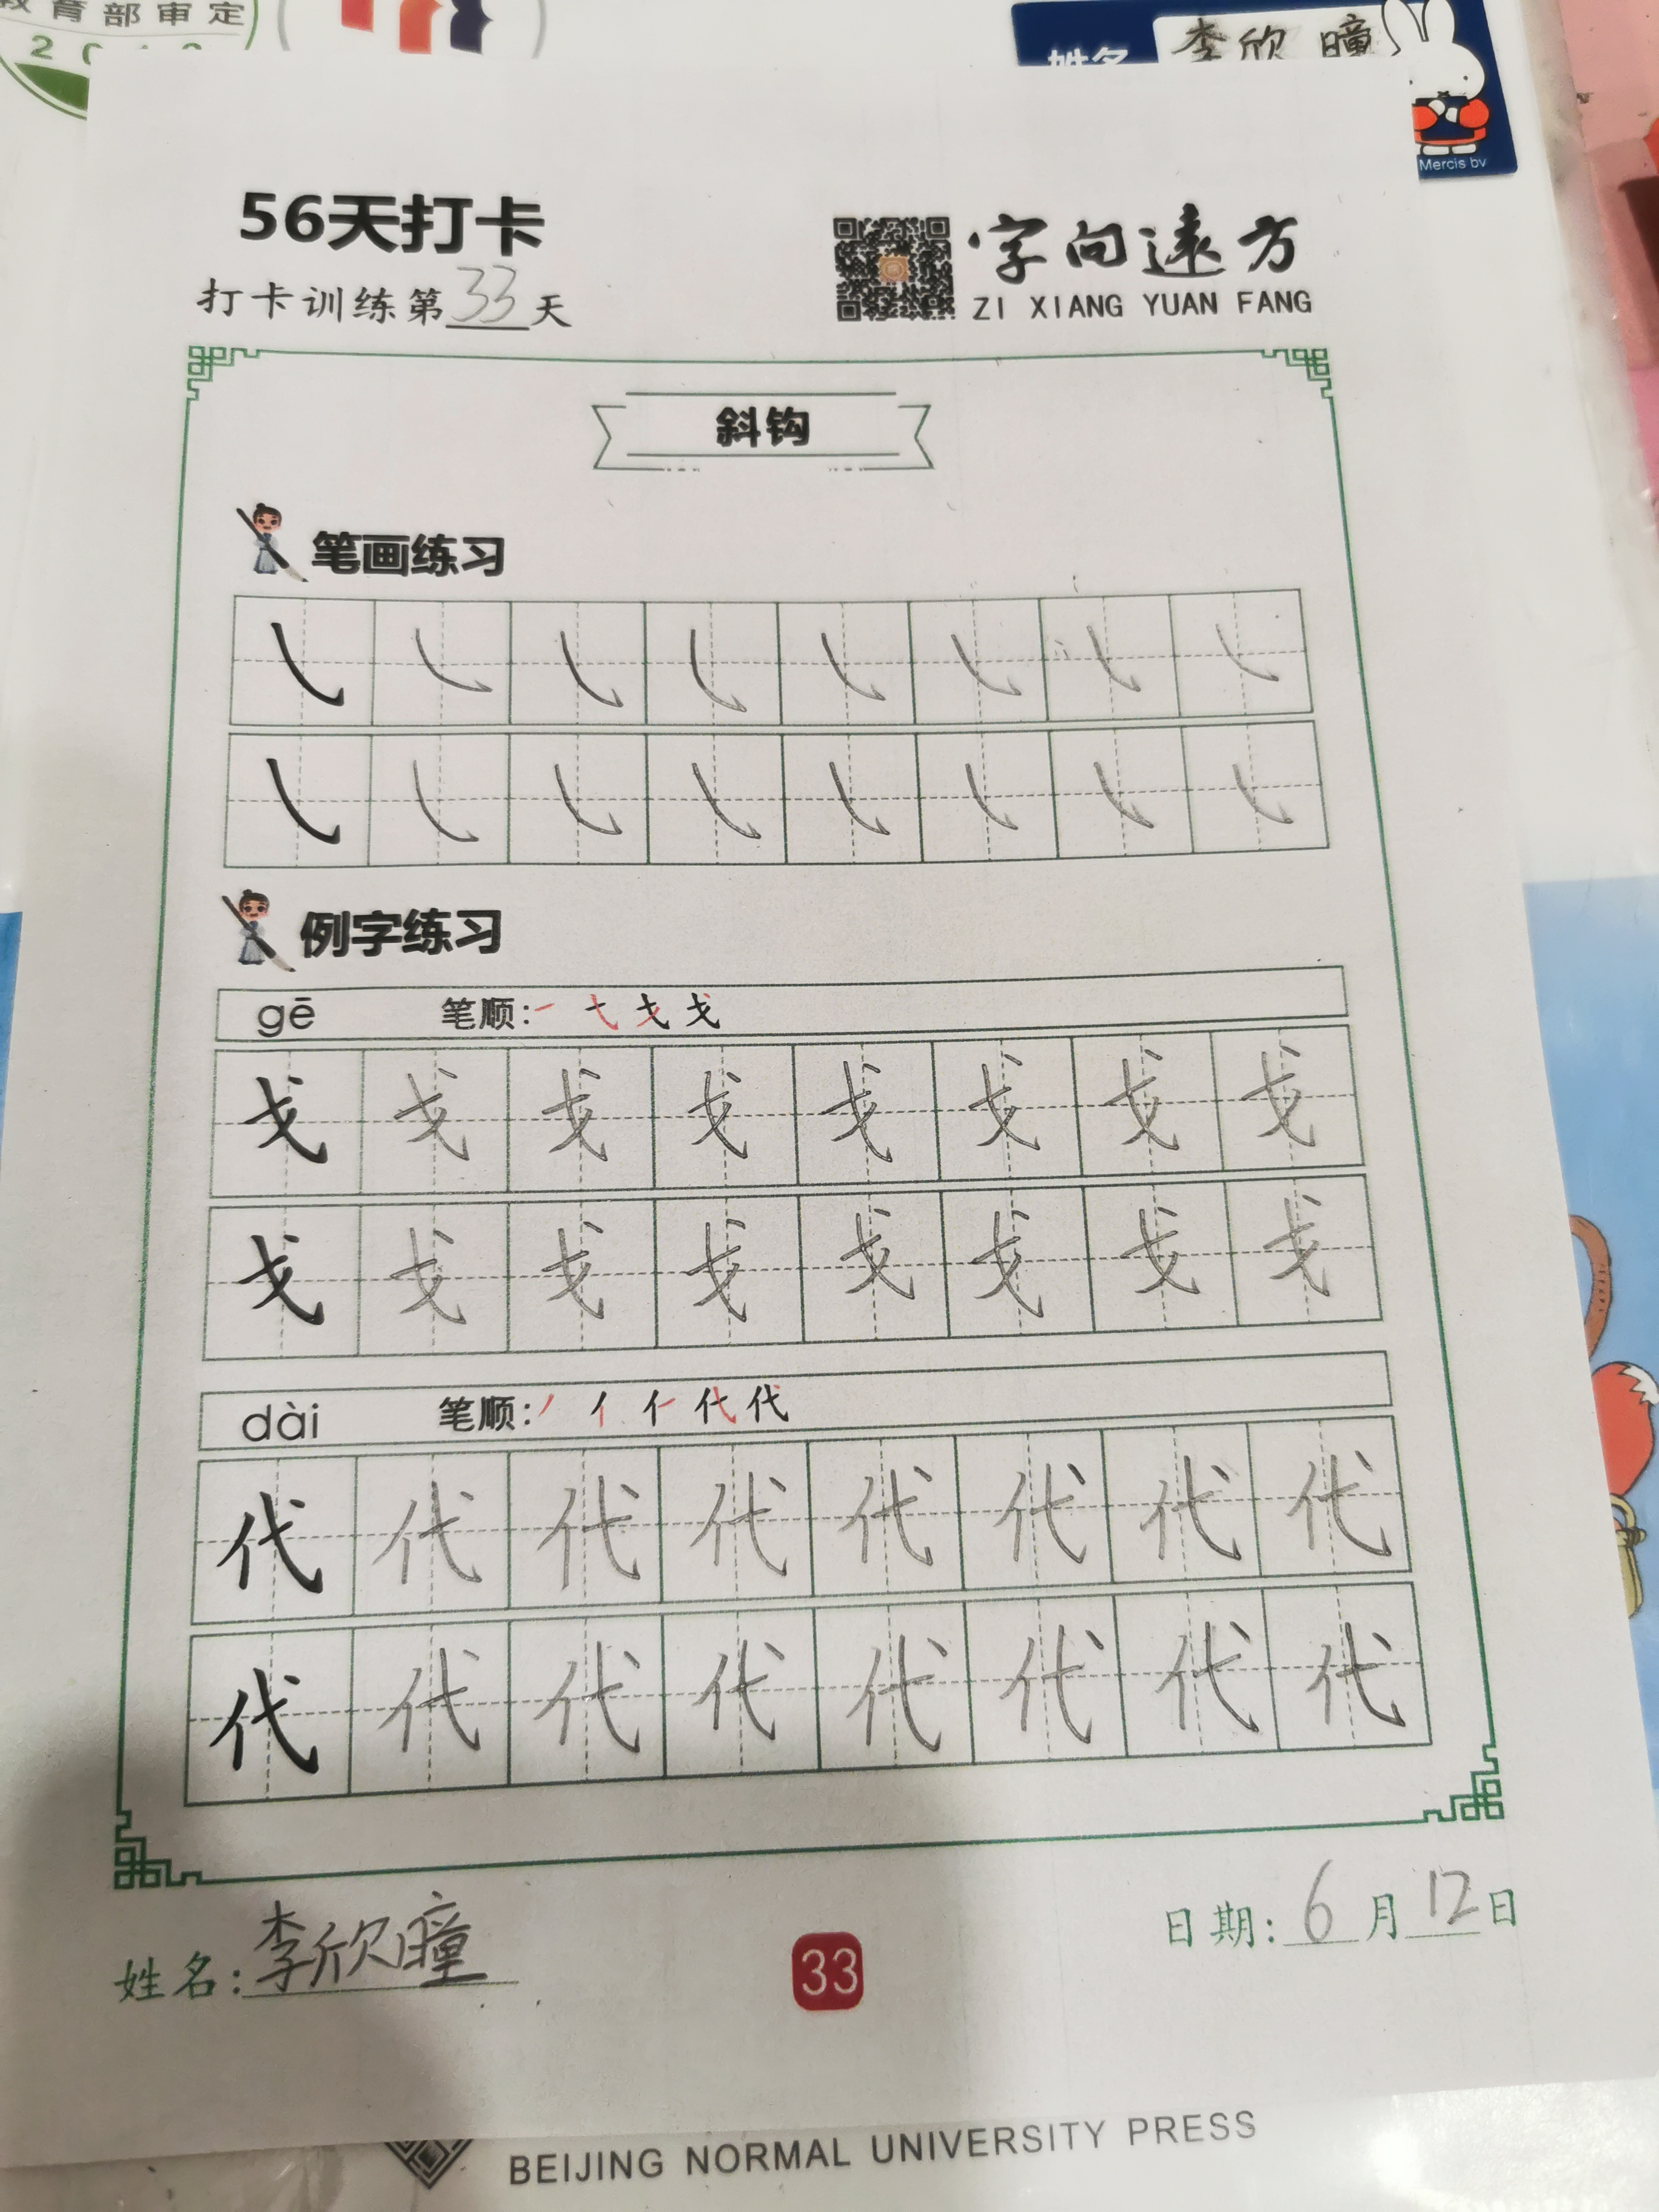 教育部审定
姓名 李欣瞳
Mercis bv
56天打卡
字向遠方
打卡训练第33天
ZI XIANG YUAN FANG
斜钩
笔画练习
例字练习
gē 笔顺: 一 戈 戈
戈 戈 戈 戈 戈 戈 戈 戈
戈 戈 戈 戈 戈 戈 戈 戈
dài 笔顺: 丿 亻 代 代
代 代 代 代 代 代 代 代
代 代 代 代 代 代 代 代
姓名: 李欣瞳
33
日期: 6月12日
BEIJING NORMAL UNIVERSITY PRESS